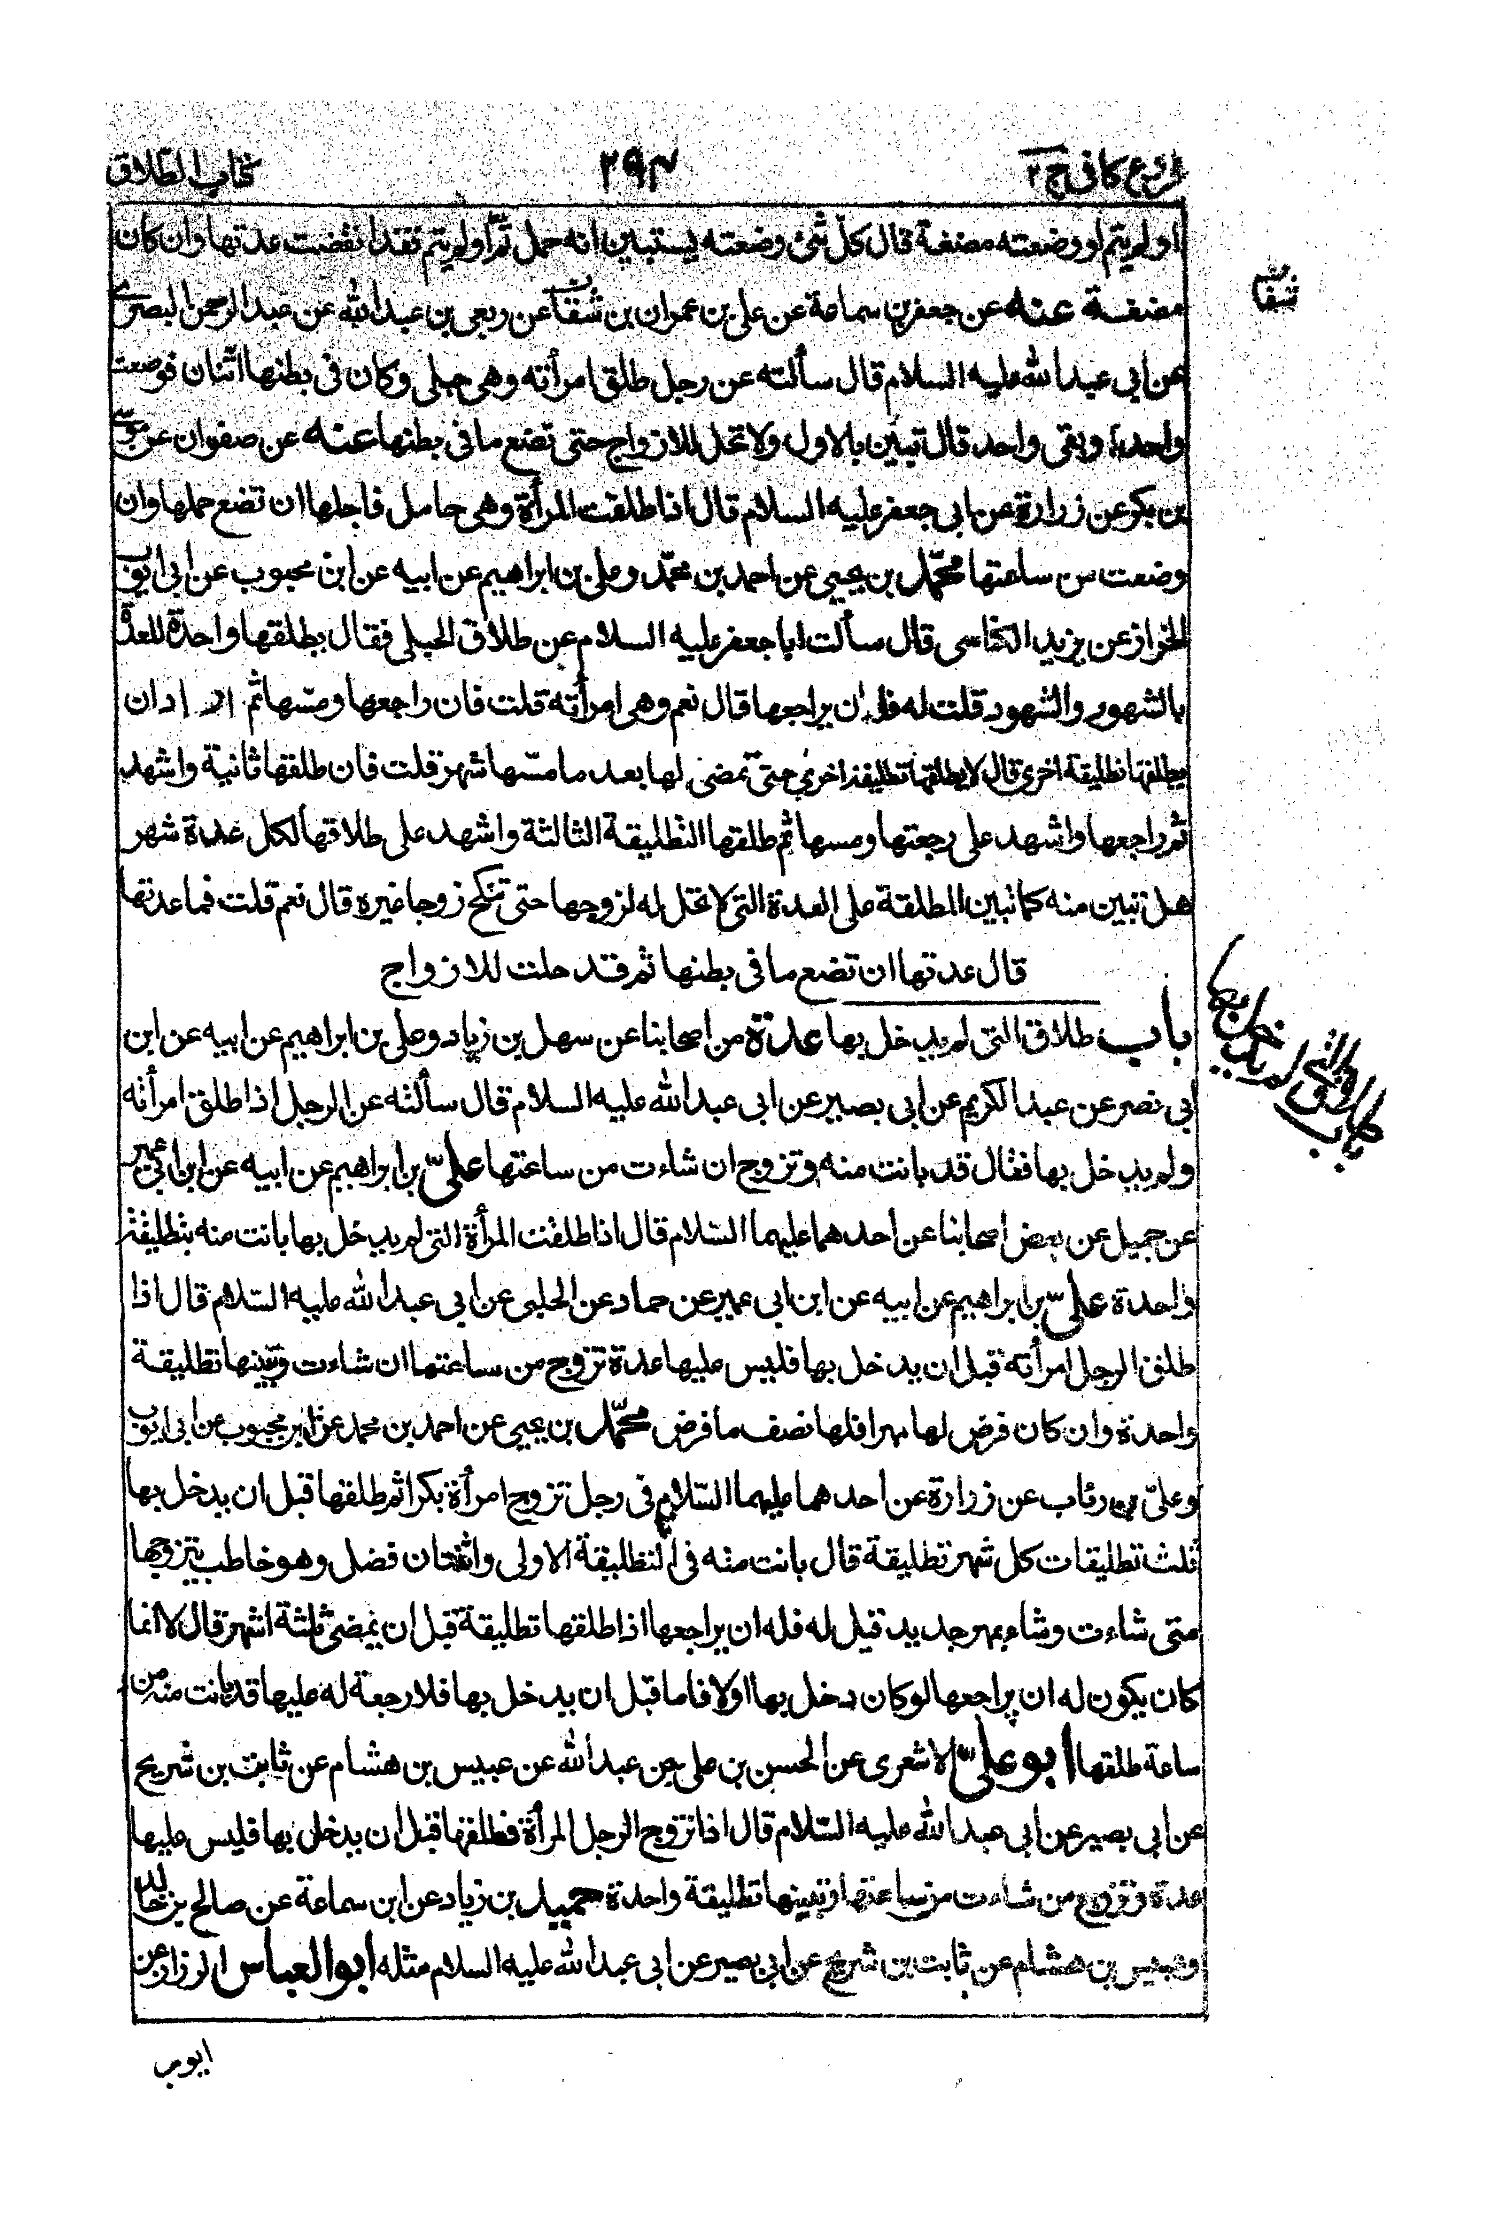 فروع كافى ج ٢ ٢٩٣ كتاب الطلاق
او لم يتم او وضعته مضغة قال كل شئ وضعته يستبين انه حمل تمّ او لم يتم فقد انقضت عدتها وان كان
مضغة عنه عن جعفر بن سماعة عن على بن عمران بن شفا عن ربعى بن عبد الله عن عبد الرحمن البصرى
عن ابى عبد الله عليه السلام قال سألته عن رجل طلق امرأته وهى حبلى وكان فى بطنها اثنان فوضعت
واحدا وبقى واحد قال تبين بالاول ولا تحل للازواج حتى تضع ما فى بطنها عنه عن صفوان عن موسى
بن بكر عن زرارة عن ابى جعفر عليه السلام قال اذا طلقت المرأة وهى حامل فاجلها ان تضع حملها وان
وضعت من ساعتها محمّد بن يحيى عن احمد بن محمّد وعلى بن ابراهيم عن ابيه عن ابن محبوب عن ابى ايوب
الخراز عن يزيد الكناسى قال سألت ابا جعفر عليه السلام عن طلاق الحبلى فقال يطلقها واحدة للعدة
بالشهور والشهود قلت له فله ان يراجعها قال نعم وهى امرأته قلت فان راجعها ومسّها ثم اراد ان
يطلقها تطليقة اخرى قال لا يطلقها تطليقة اخرى حتى تمضى لها بعد ما مسّها شهر قلت فان طلقها ثانية واشهد
ثم راجعها واشهد على رجعتها ومسها ثم طلقها التطليقة الثالثة واشهد على طلاقها لكل عدة شهر
هل تبين منه كما تبين المطلقة على العدة التى لا تحل له لزوجها حتى تنكح زوجا غيره قال نعم قلت فما عدتها
قال عدتها ان تضع ما فى بطنها ثم قد حلت للازواج
باب طلاق التى لم يدخل بها عدة من اصحابنا عن سهل بن زياد وعلى بن ابراهيم عن ابيه عن ابن
ابى نصر عن عبد الكريم عن ابى بصير عن ابى عبد الله عليه السلام قال سألته عن الرجل اذا طلق امرأته
ولم يدخل بها فقال قد بانت منه وتزوج ان شاءت من ساعتها علىّ بن ابراهيم عن ابيه عن ابن ابى عمير
عن جميل عن بعض اصحابنا عن احدهما عليهما السّلام قال اذا طلقت المرأة التى لم يدخل بها بانت منه بتطليقة
واحدة علىّ بن ابراهيم عن ابيه عن ابن ابى عمير عن حماد عن الحلبى عن ابى عبد الله عليه السّلام قال اذا
طلق الرجل امرأته قبل ان يدخل بها فليس عليها عدة تزوج من ساعتها ان شاءت وتبينها تطليقة
واحدة وان كان فرض لها مهرا فلها نصف ما فرض محمّد بن يحيى عن احمد بن محمد عن ابن محبوب عن ابى ايوب
وعلىّ بن رئاب عن زرارة عن احدهما عليهما السّلام فى رجل تزوج امرأة بكرا ثم طلقها قبل ان يدخل بها
ثلث تطليقات كل شهر تطليقة قال بانت منه فى التطليقة الاولى واثنتان فضل وهو خاطب يتزوجها
متى شاءت وشاء بمهر جديد قيل له فله ان يراجعها اذا طلقها تطليقة قبل ان يمضى ثلثة اشهر قال لا انما
كان يكون له ان يراجعها لو كان دخل بها اولا فاما قبل ان يدخل بها فلا رجعة له عليها قد بانت منه من
ساعة طلقها ابو علىّ الاشعرى عن الحسن بن على بن عبد الله عن عبيس بن هشام عن ثابت بن شريح
عن ابى بصير عن ابى عبد الله عليه السّلام قال اذا تزوج الرجل المرأة فطلقها قبل ان يدخل بها فليس عليها
عدة وتزوج من شاءت من ساعتها وتبينها تطليقة واحدة حميد بن زياد عن ابن سماعة عن صالح بن خالد
وعبيس بن هشام عن ثابت بن شريح عن ابى بصير عن ابى عبد الله عليه السلام مثله ابو العباس الرزاز عن
ايوب
باب طلاق التى لم يدخل بها